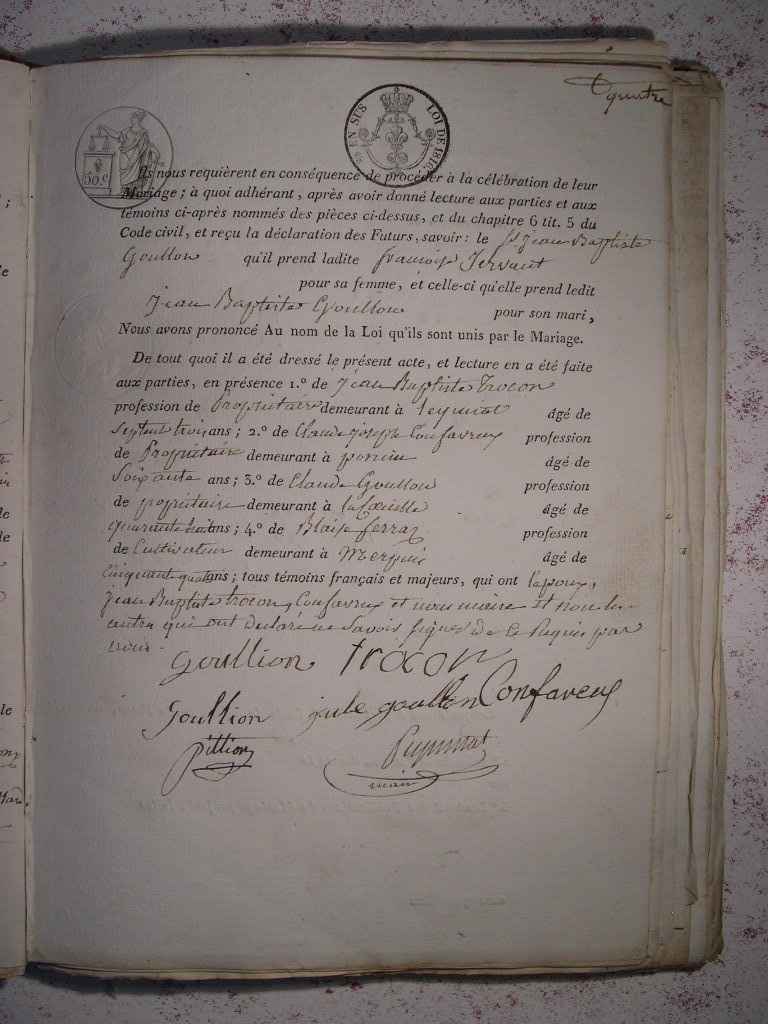 quatre
EN SUS LOI DE 1816.
50 c
Ils nous requièrent en conséquence de procéder à la célébration de leur
Mariage ; à quoi adhérant, après avoir donné lecture aux parties et aux
témoins ci-après nommés des pièces ci-dessus, et du chapitre 6 tit. 5 du
Code civil, et reçu la déclaration des Futurs, savoir : le Sr. Jean Baptiste
Goullon qu'il prend ladite françoise Servant
pour sa femme, et celle-ci qu'elle prend ledit
Jean Baptiste Goullon pour son mari,
Nous avons prononcé Au nom de la Loi qu'ils sont unis par le Mariage.
De tout quoi il a été dressé le présent acte, et lecture en a été faite
aux parties, en présence 1.º de Jean Baptiste trocon
profession de Propriétaire demeurant à leymiat âgé de
Septent trois ans ; 2.º de Claude joseph Confavreux profession
de Propriétaire demeurant à poncin âgé de
Soixante ans ; 3.º de Claude Goullon profession
de propriétaire demeurant à la Coeille âgé de
quarante huit ans ; 4.º de Blaise ferraz profession
de Cultivateur demeurant à Merpuis âgé de
Cinquante quatre ans ; tous témoins français et majeurs, qui ont l'époux,
jean Baptiste trocon, Confavreux et nous maire Et non les
autres qui ont declaré ne Savoir signer de Ce Requis par
nous.
Goullion trocon
Goullion goullon Confavreux
pittion
maire